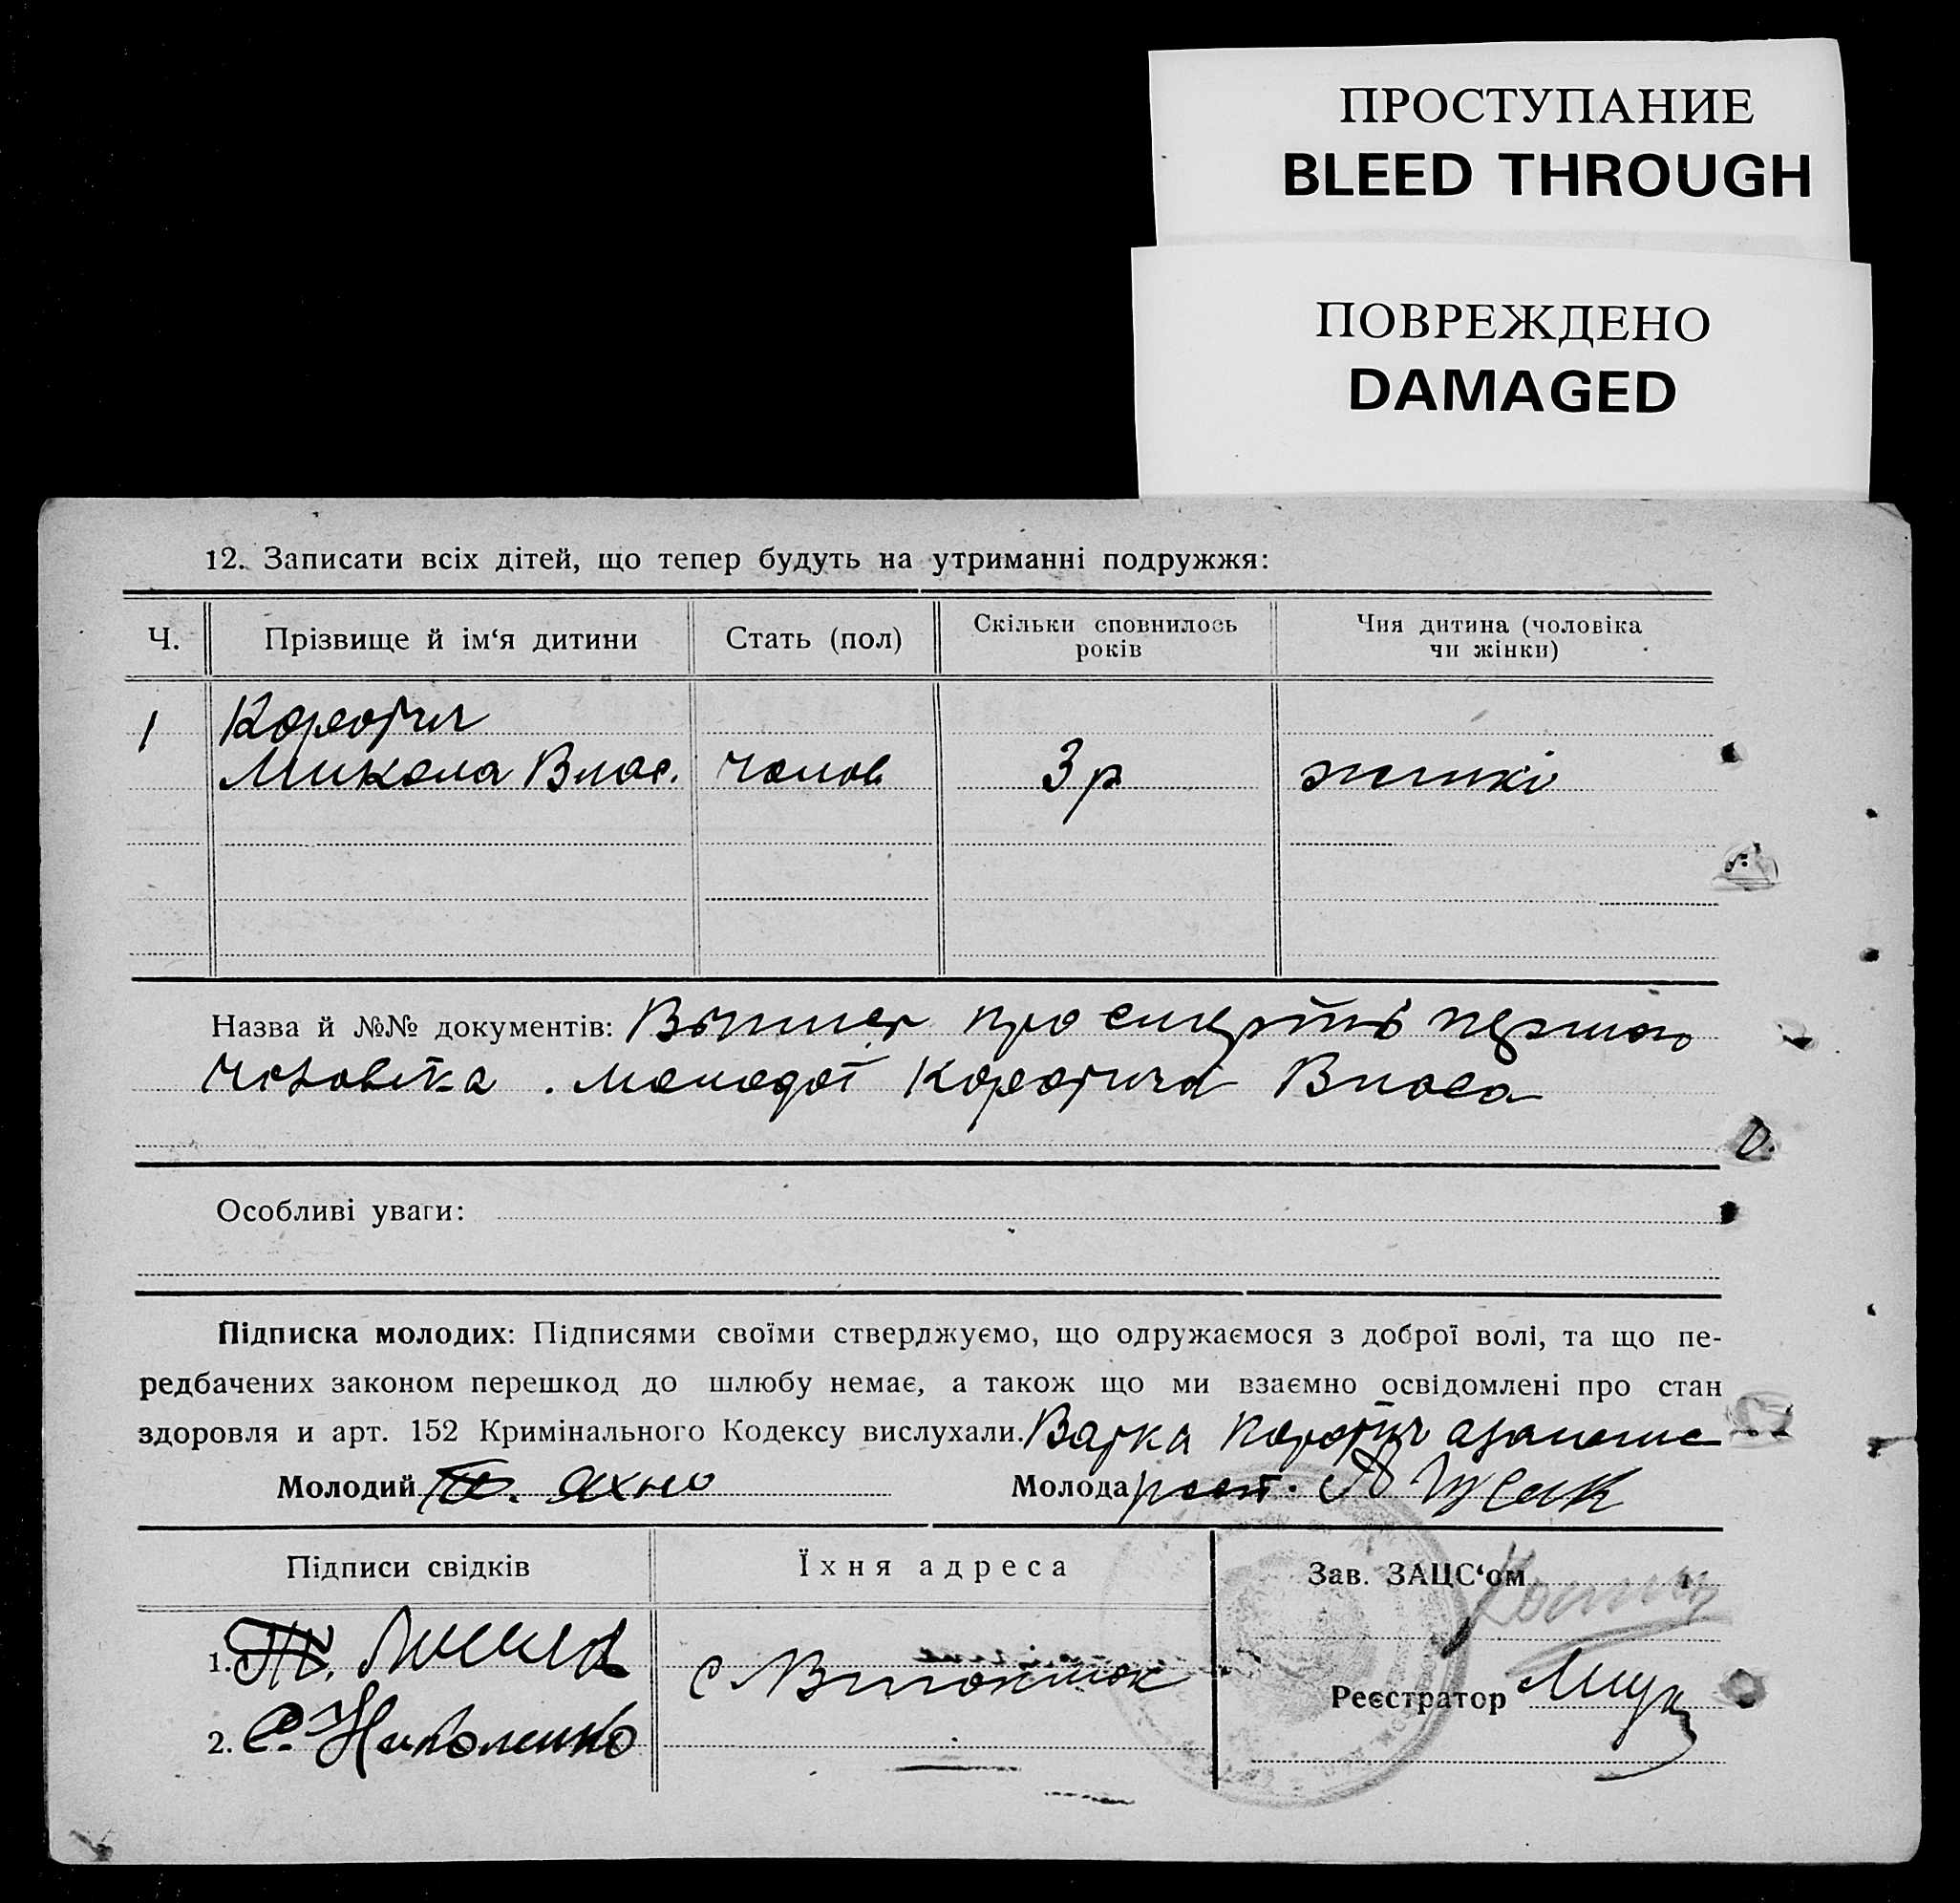 ПРОСТУПАНИЕ
BLEED THROUGH
ПОВРЕЖДЕНО
DAMAGED
12. Записати всіх дітей, що тепер будуть на утриманні подружжя:
Ч. Прізвище й ім‘я дитини Стать (пол) Скільки сповнилось років Чия дитина (чоловіка чи жінки)
1 Коротич
Микола Влас. чолов 3 р жинкі
Назва й №№ документів: про смерть першого
чоловіка. молодої Коротича Власа
Особливі уваги:
Підписка молодих: Підписями своїми стверджуємо, що одружаємося з доброї волі, та що пе-
редбачених законом перешкод до шлюбу немає, а також що ми взаємно освідомлені про стан
здоровля и арт. 152 Кримінального Кодексу вислухали. Коротич
Молодий Яхно Молода
Підписи свідків Їхня адреса Зав. ЗАЦС‘ом
1. с
2. Реєстратор